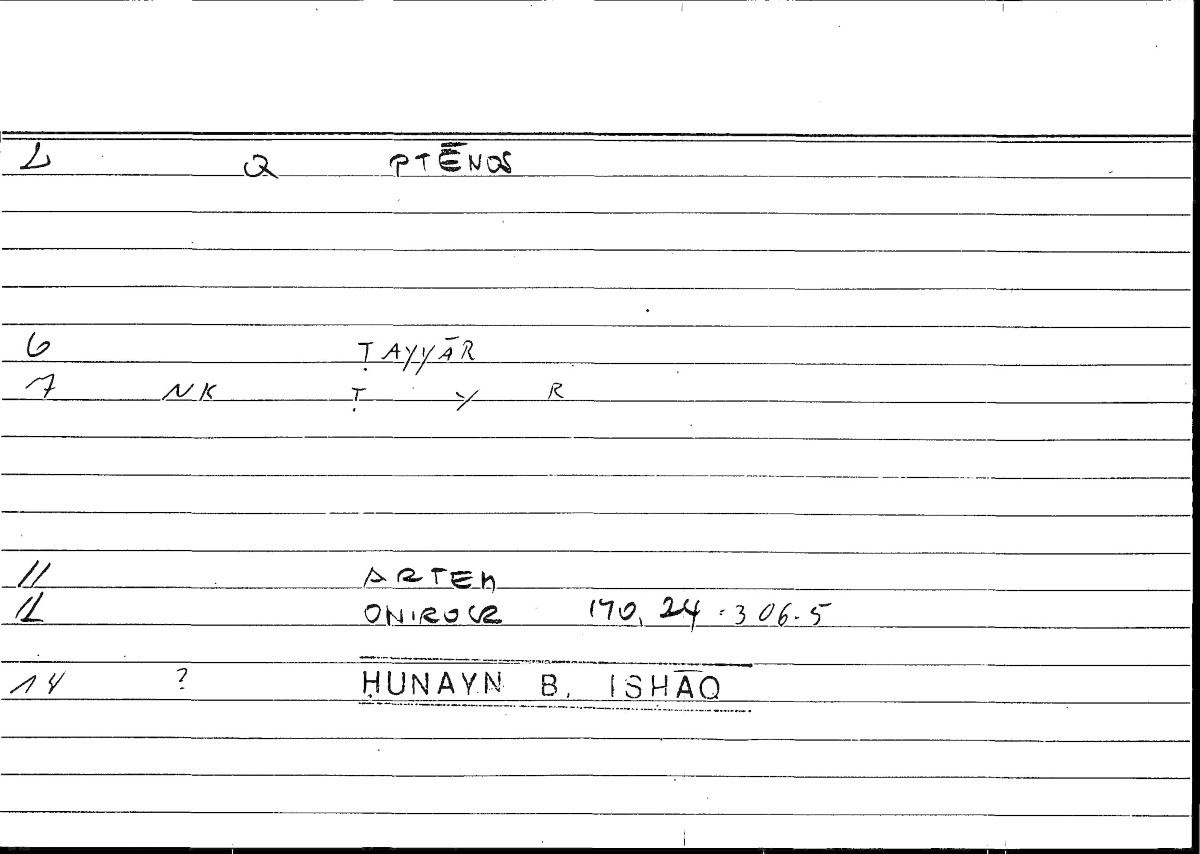 2 Q PTĒNOS
6 ṬAYYĀR
7 NK Ṭ Y R
11 ARTEM
12 ONIROCR 170, 24 · 306.5
14 ? ḤUNAYN B. ISḤĀQ